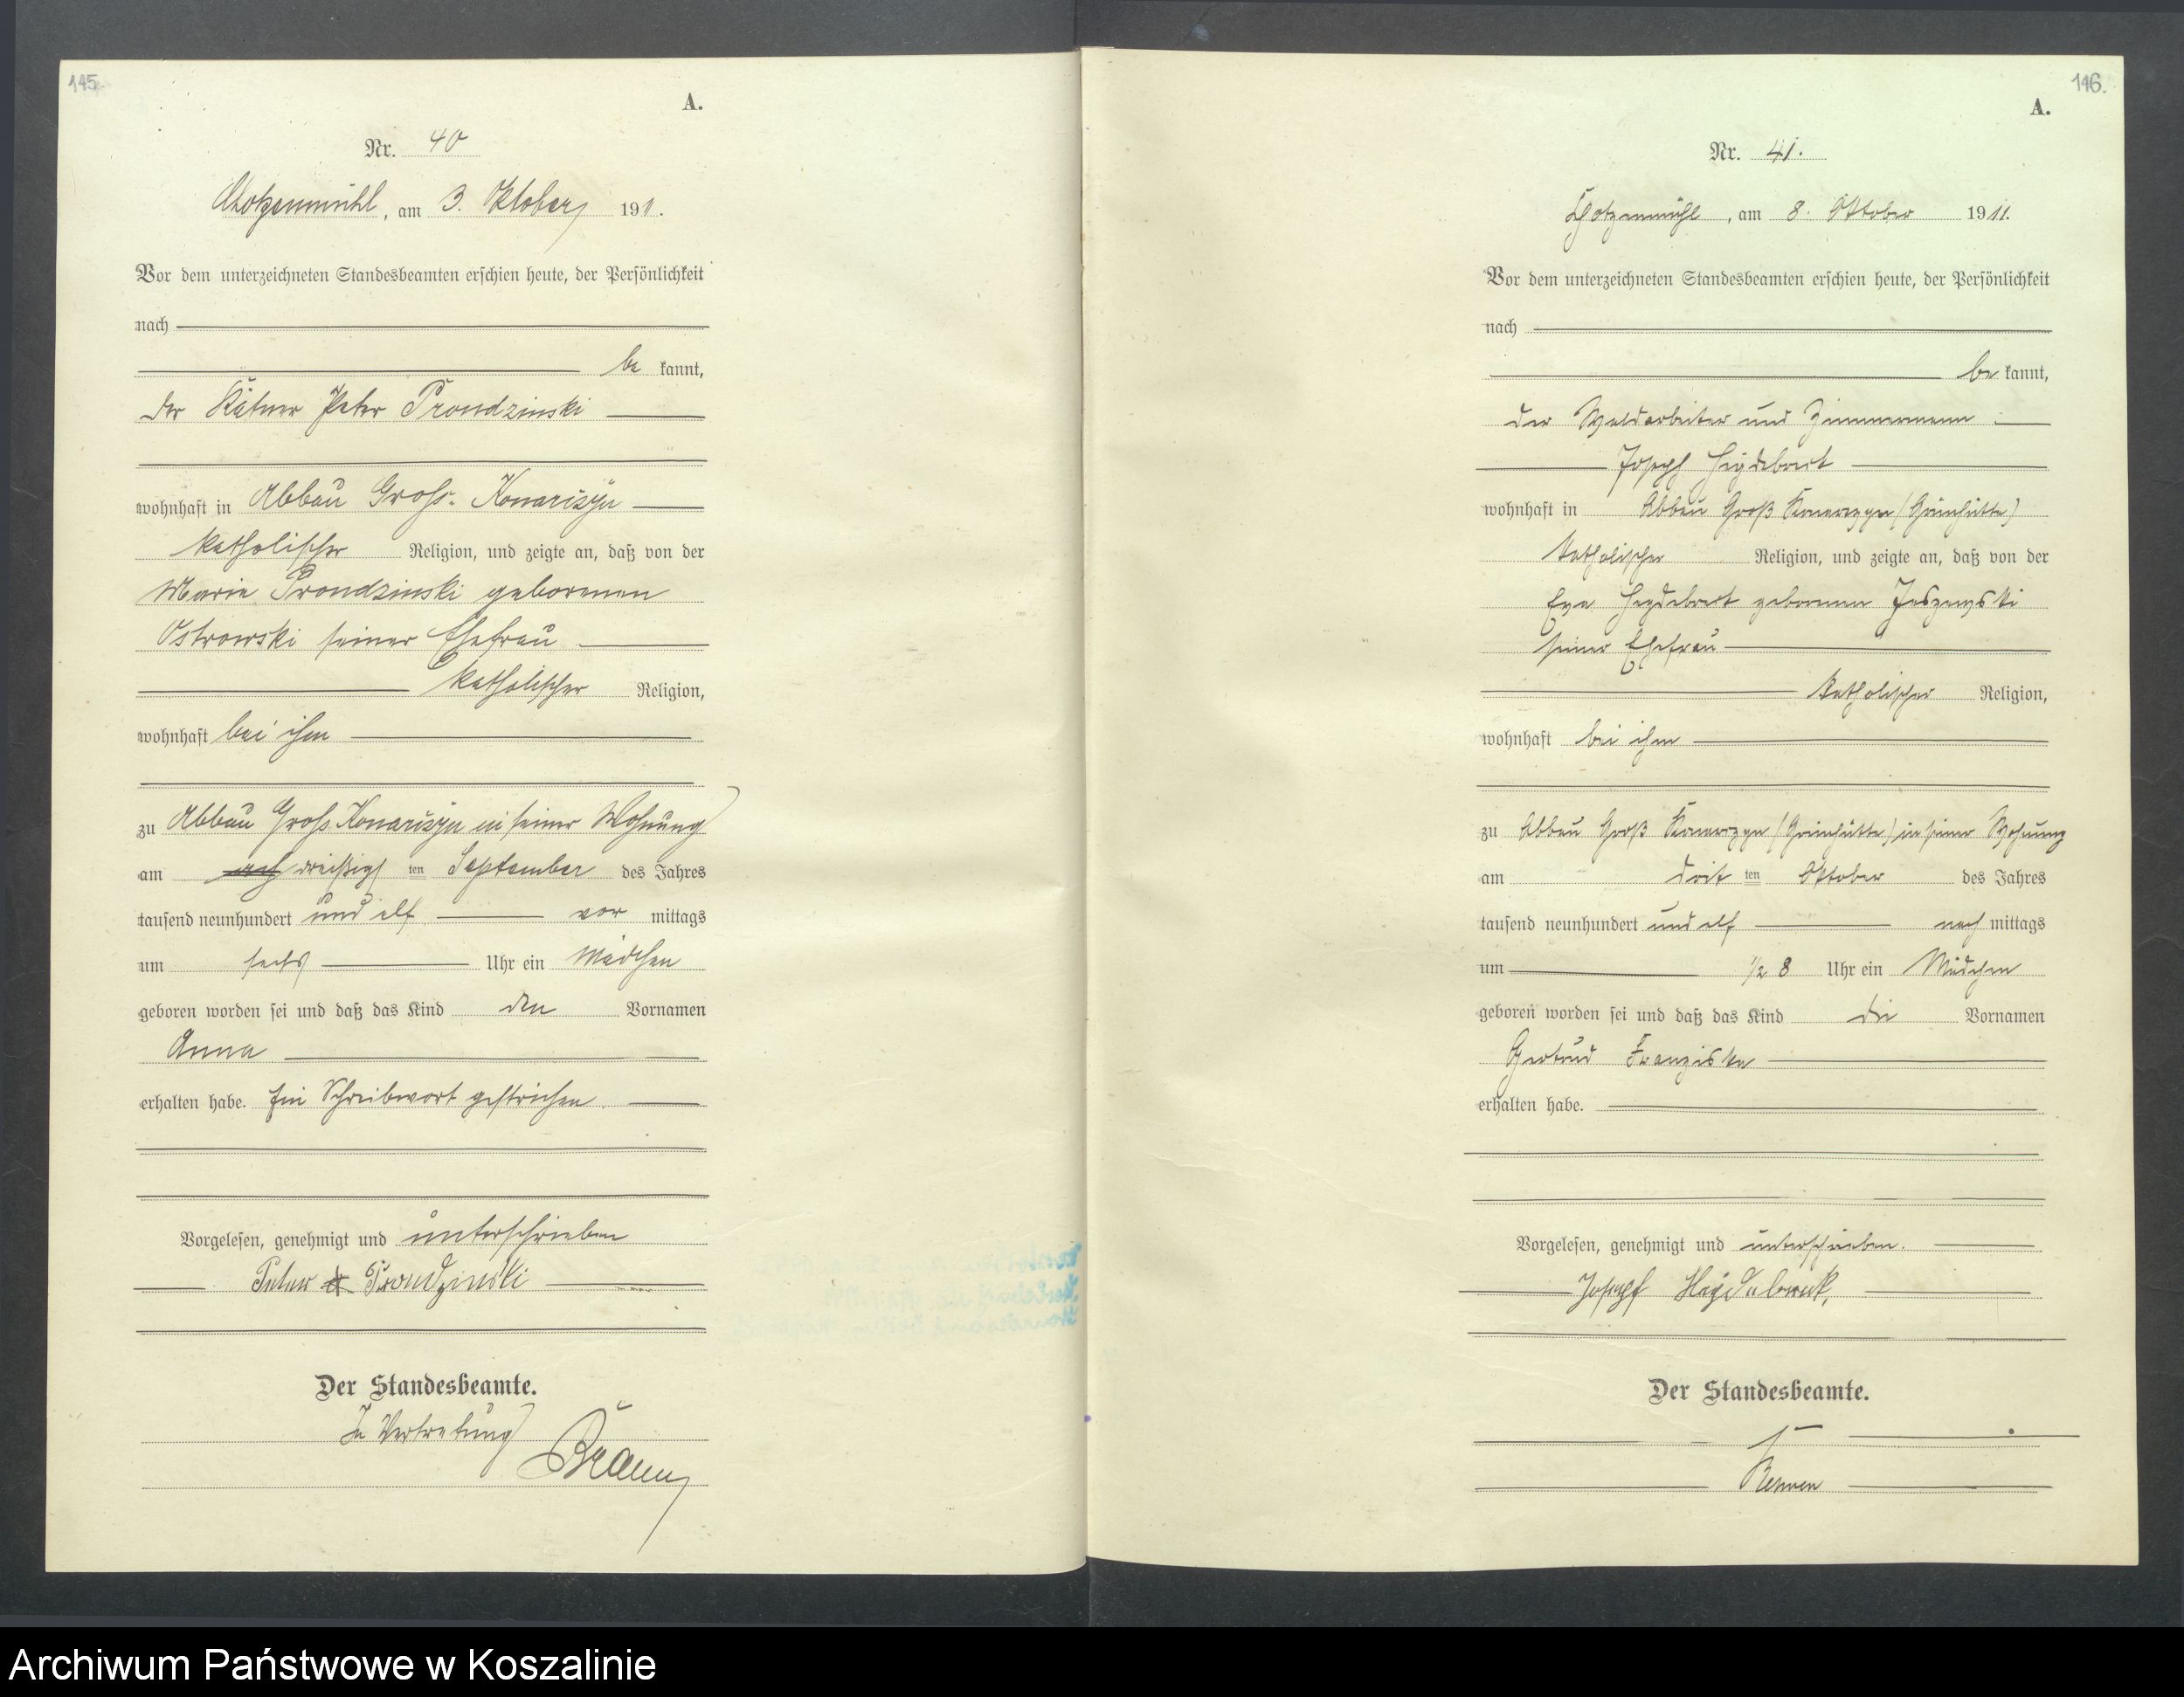 145.
A.
Nr. 40
Chotzenmühl, am 3. Oktober 191.
Vor dem unterzeichneten Standesbeamten erschien heute, der Persönlichkeit
nach
be kannt,
der Kätner Peter Prondzinski
wohnhaft in Abbau Gross-Konarzyn
katholischer Religion, und zeigte an, daß von der
Maria Prondzinski geborenen
Ostrowski seiner Ehefrau
katholischer Religion,
wohnhaft bei ihm
zu Abbau Gross Konarzyn in seiner Wohnung
am dreißigs ten September des Jahres
tausend neunhundert und elf vor mittags
um sechs Uhr ein Mädchen
geboren worden sei und daß das Kind den Vornamen
Anna
erhalten habe. Ein Schreibwort gestrichen.
Vorgelesen, genehmigt und unterschrieben
Peter Prondzinski
Der Standesbeamte.
In Vertretung
146.
A.
Nr. 41.
Chotzenmühl, am 8. Oktober 1911.
Vor dem unterzeichneten Standesbeamten erschien heute, der Persönlichkeit
nach
be kannt,
der Waldarbeiter und Zimmermann
Joseph
wohnhaft in Abbau Groß Konarzyn (Grünhütte)
katholischer Religion, und zeigte an, daß von der
Eva geborenen
seiner Ehefrau
katholischer Religion,
wohnhaft bei ihm
zu Abbau Groß Konarzyn (Grünhütte) in seiner Wohnung
am drit ten Oktober des Jahres
tausend neunhundert und elf nach mittags
um 1/2 8 Uhr ein Mädchen
geboren worden sei und daß das Kind die Vornamen
Gertrud Franziska
erhalten habe.
Vorgelesen, genehmigt und unterschrieben.
Joseph
Der Standesbeamte.
Archiwum Państwowe w Koszalinie